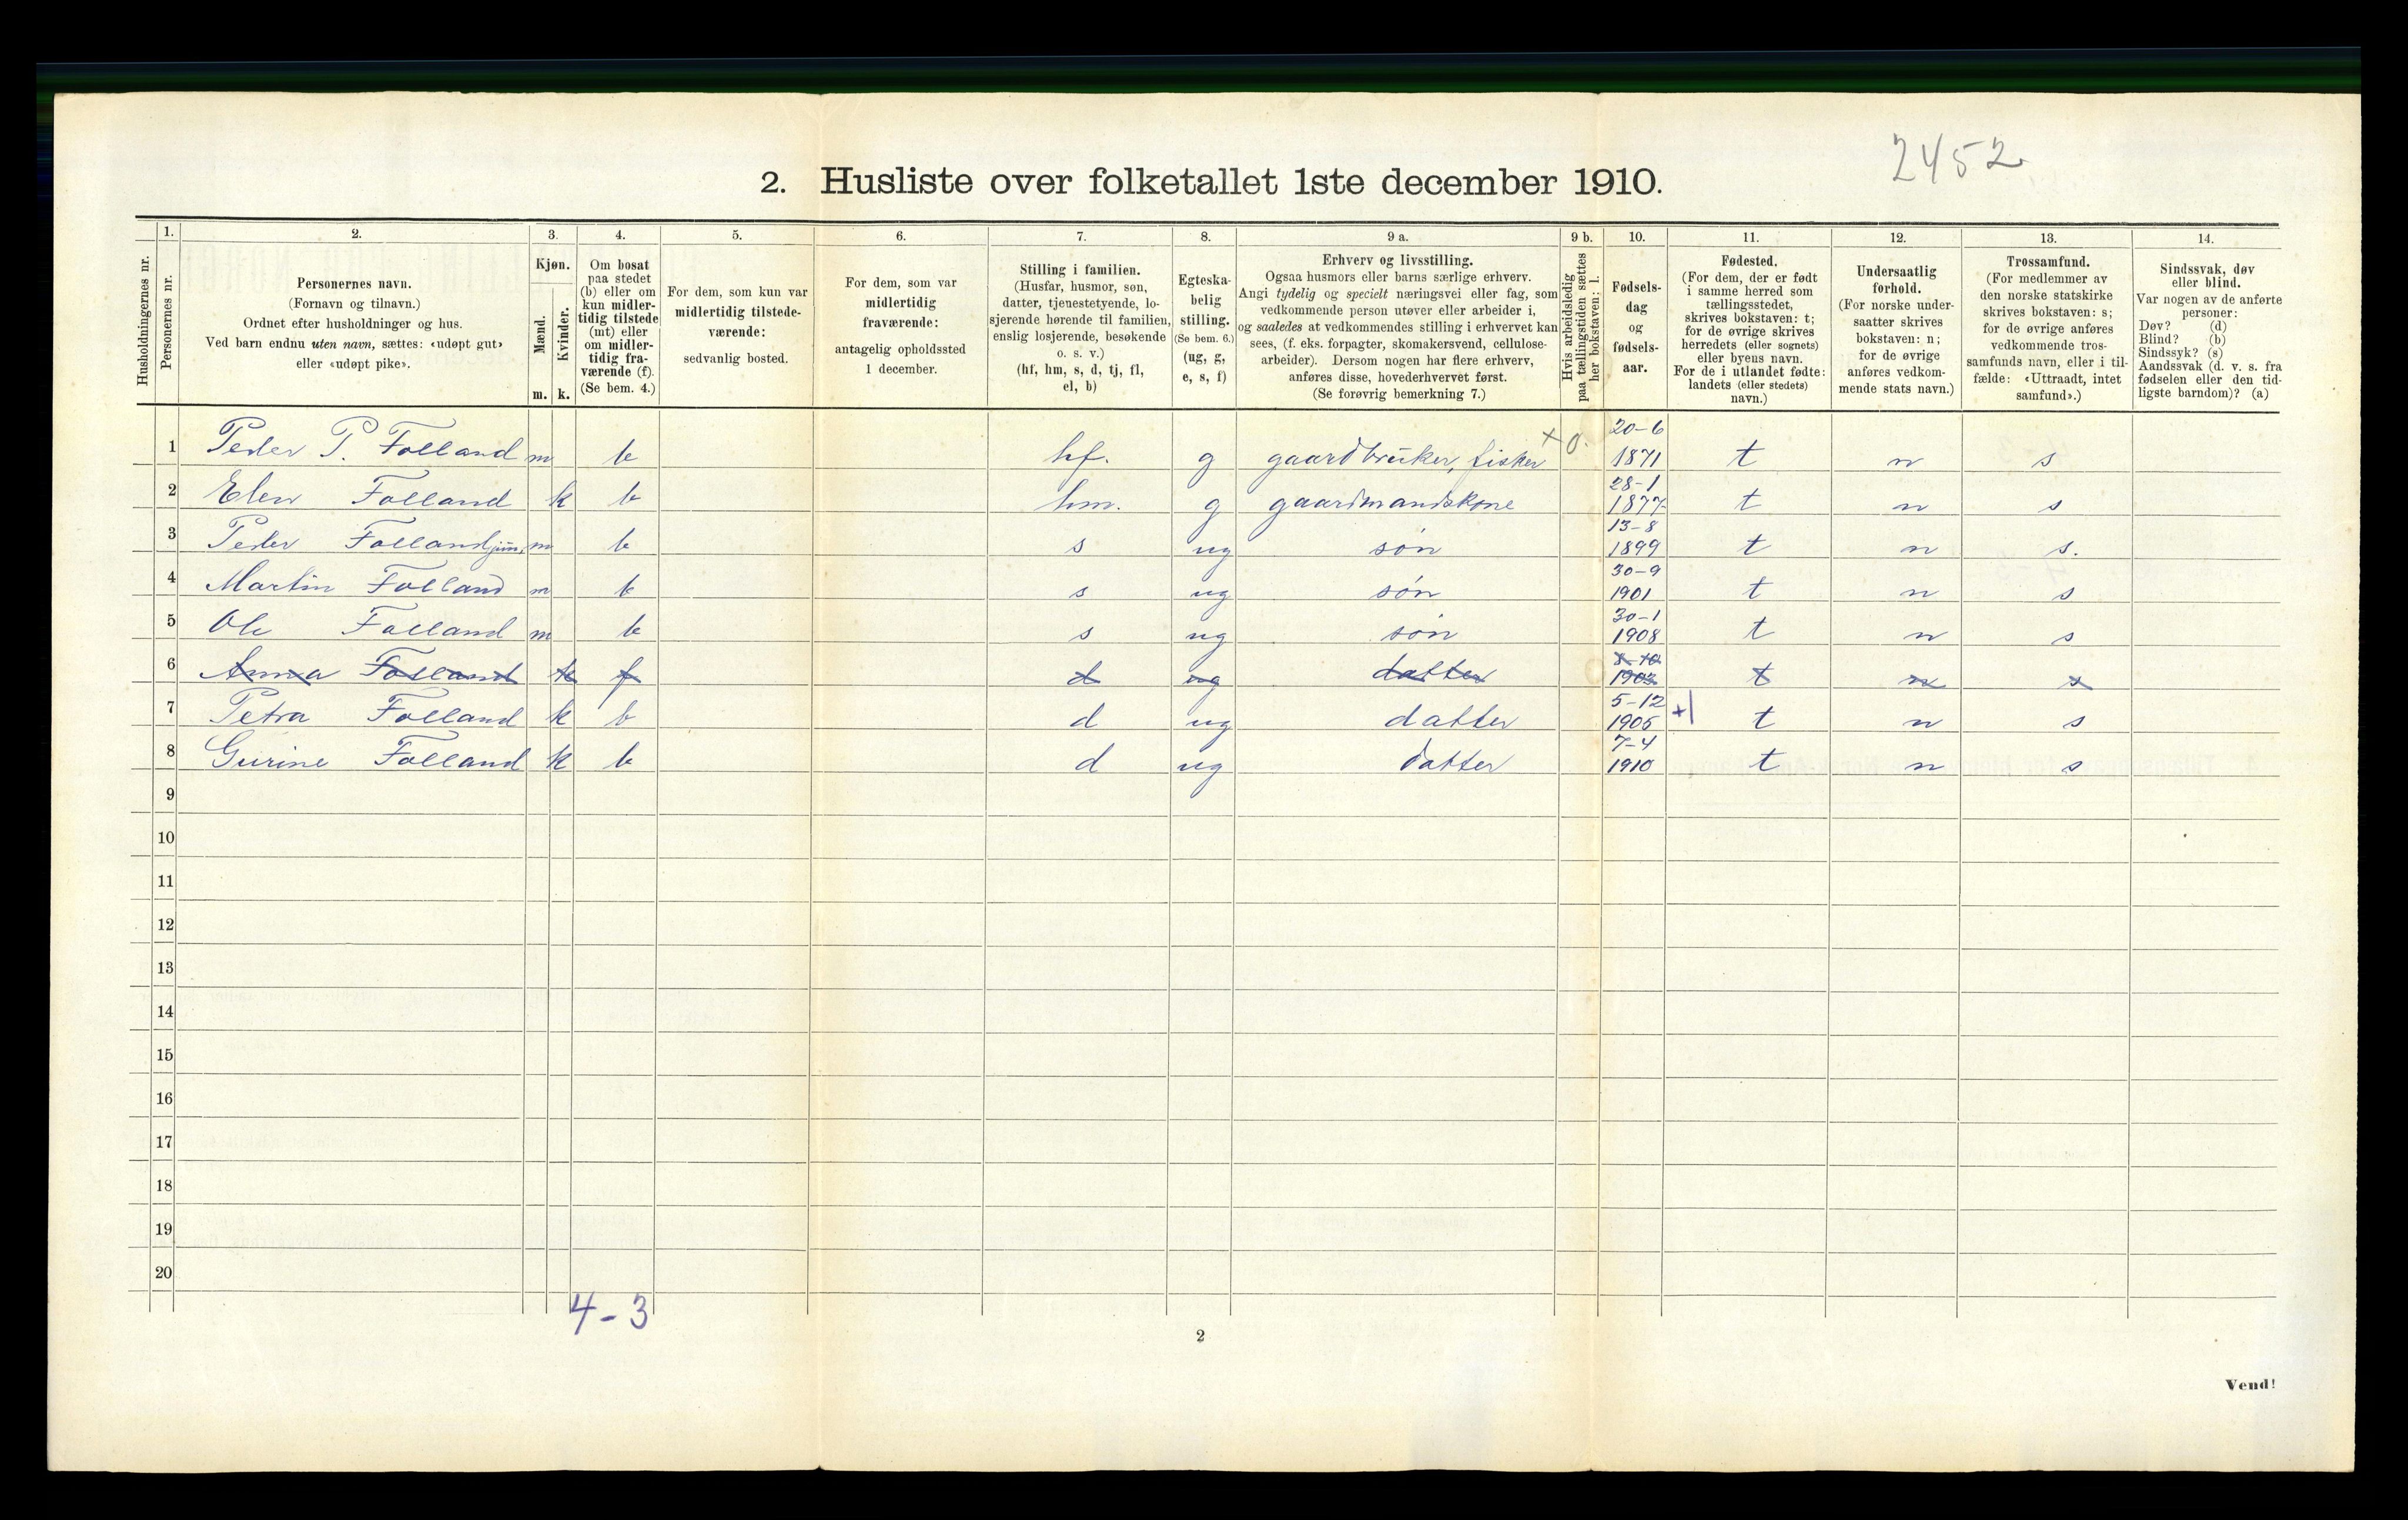 2452
2. Husliste over folketallet 1ste december 1910.
Husholdningernes nr.
1.
Personernes nr.
2.
Personernes navn.
(Fornavn og tilnavn.)
Ordnet efter husholdninger og hus.
Ved barn endnu uten navn, sættes: «udøpt gut»
eller «udøpt pike».
3.
Kjøn.
Mænd.
Kvinder.
m. k.
4.
Om bosat
paa stedet
(b) eller om
kun midler-
tidig tilstede
(mt) eller
om midler-
tidig fra-
værende (f).
(Se bem. 4.)
5.
For dem, som kun var
midlertidig tilstede-
værende:
sedvanlig bosted.
6.
For dem, som var
midlertidig
fraværende:
antagelig opholdssted
1 december.
7.
Stilling i familien.
(Husfar, husmor, søn,
datter, tjenestetyende, lo-
sjerende hørende til familien,
enslig losjerende, besøkende
o. s. v.)
(hf, hm, s, d, tj, fl,
el, b)
8.
Egteska-
belig
stilling.
(Se bem. 6.)
(ug, g,
e, s, f)
9 a.
Erhverv og livsstilling.
Ogsaa husmors eller barns særlige erhverv.
Angi tydelig og specielt næringsvei eller fag, som
vedkommende person utøver eller arbeider i,
og saaledes at vedkommendes stilling i erhvervet kan
sees, (f. eks. forpagter, skomakersvend, cellulose-
arbeider). Dersom nogen har flere erhverv,
anføres disse, hovederhvervet først.
(Se forøvrig bemerkning 7.)
9 b.
Hvis arbeidsledig
paa tællingstiden sættes
her bokstaven: l.
10.
Fødsels-
dag
og
fødsels-
aar.
11.
Fødested.
(For dem, der er født
i samme herred som
tællingsstedet,
skrives bokstaven: t;
for de øvrige skrives
herredets (eller sognets)
eller byens navn.
For de i utlandet fødte:
landets (eller stedets)
navn.)
12.
Undersaatlig
forhold.
(For norske under-
saatter skrives
bokstaven: n;
for de øvrige
anføres vedkom-
mende stats navn.)
13.
Trossamfund.
(For medlemmer av
den norske statskirke
skrives bokstaven: s;
for de øvrige anføres
vedkommende tros-
samfunds navn, eller i til-
fælde: «Uttraadt, intet
samfund».)
14.
Sindssvak, døv
eller blind.
Var nogen av de anførte
personer:
Døv? (d)
Blind? (b)
Sindssyk? (s)
Aandssvak (d. v. s. fra
fødselen eller den tid-
ligste barndom)? (a)
1 Peder P. Folland m b hf. g gaardbruker, fisker x 0. 20-6 1871 t n s
2 Elen Folland k b hm. g gaardmandskone 28-1 1877 t n s
3 Peder Folland jun. m b s ug søn 13-8 1899 t n s.
4 Martin Folland m b s ug søn 30-9 1901 t n s
5 Ole Folland m b s ug søn 30-1 1908 t n s
6 Anna Folland k f d ug datter 8-10 1903 t n s
7 Petra Folland k b d ug datter 5-12 1905 +1 t n s
8 Gurine Folland k b d ug datter 7-4 1910 t n s
9
10
11
12
13
14
15
16
17
18
19
20
4-3
2
Vend!